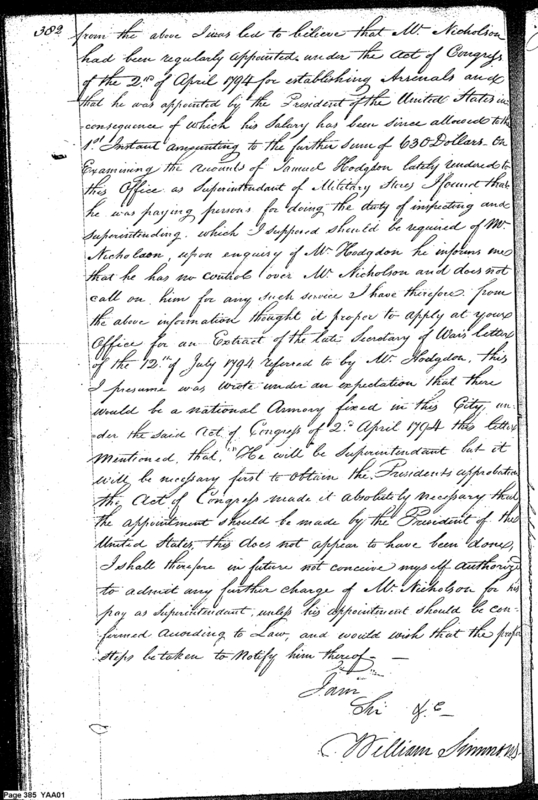 382
from the above I was led to believe that Mr. Nicholson
had been regularly appointed under the Act of Congress
of the 2nd of April 1794 for establishing Arsenals and
that he was appointed by the President of the United States in
consequence of which his Salary has been since allowed to the
1st Instant amounting to the further sum of 630 Dollars. On
Examining the accounts of Samuel Hodgdon lately rendered to
this Office as Superintendant of Military Stores I found that
he was paying persons for doing the duty of inspecting and
superintending, which I supposed should be required of Mr.
Nicholson, upon enquiry of Mr. Hodgdon he informs me
that he has no control over Mr. Nicholson and does not
call on him for any such service I have therefore from
the above information thought it proper to apply at your
Office for an Extract of the late Secretary of Wars letter
of the 12th of July 1794 referred to by Mr. Hodgdon, this
I presume was wrote under an expectation that there
would be a national Armory fixed in this City, un-
der the said Act of Congress of 2d April 1794 this letter
Mentioned, that, "He will be Superintendant but it
will be necessary first to obtain the Presidents approbation
the Act of Congress made it absolutely necessary that
the appointment should be made by the President of the
United States, this does not appear to have been done,
I shall therefore in future not conceive myself authorized
to admit any further charge of Mr. Nicholson for his
pay as Superintendant, unless his appointment should be con-
firmed according to Law, and would wish that the proper
steps be taken to Notify him thereof —
I am
Sir &c—
William Simmons
Page 385 YAA01